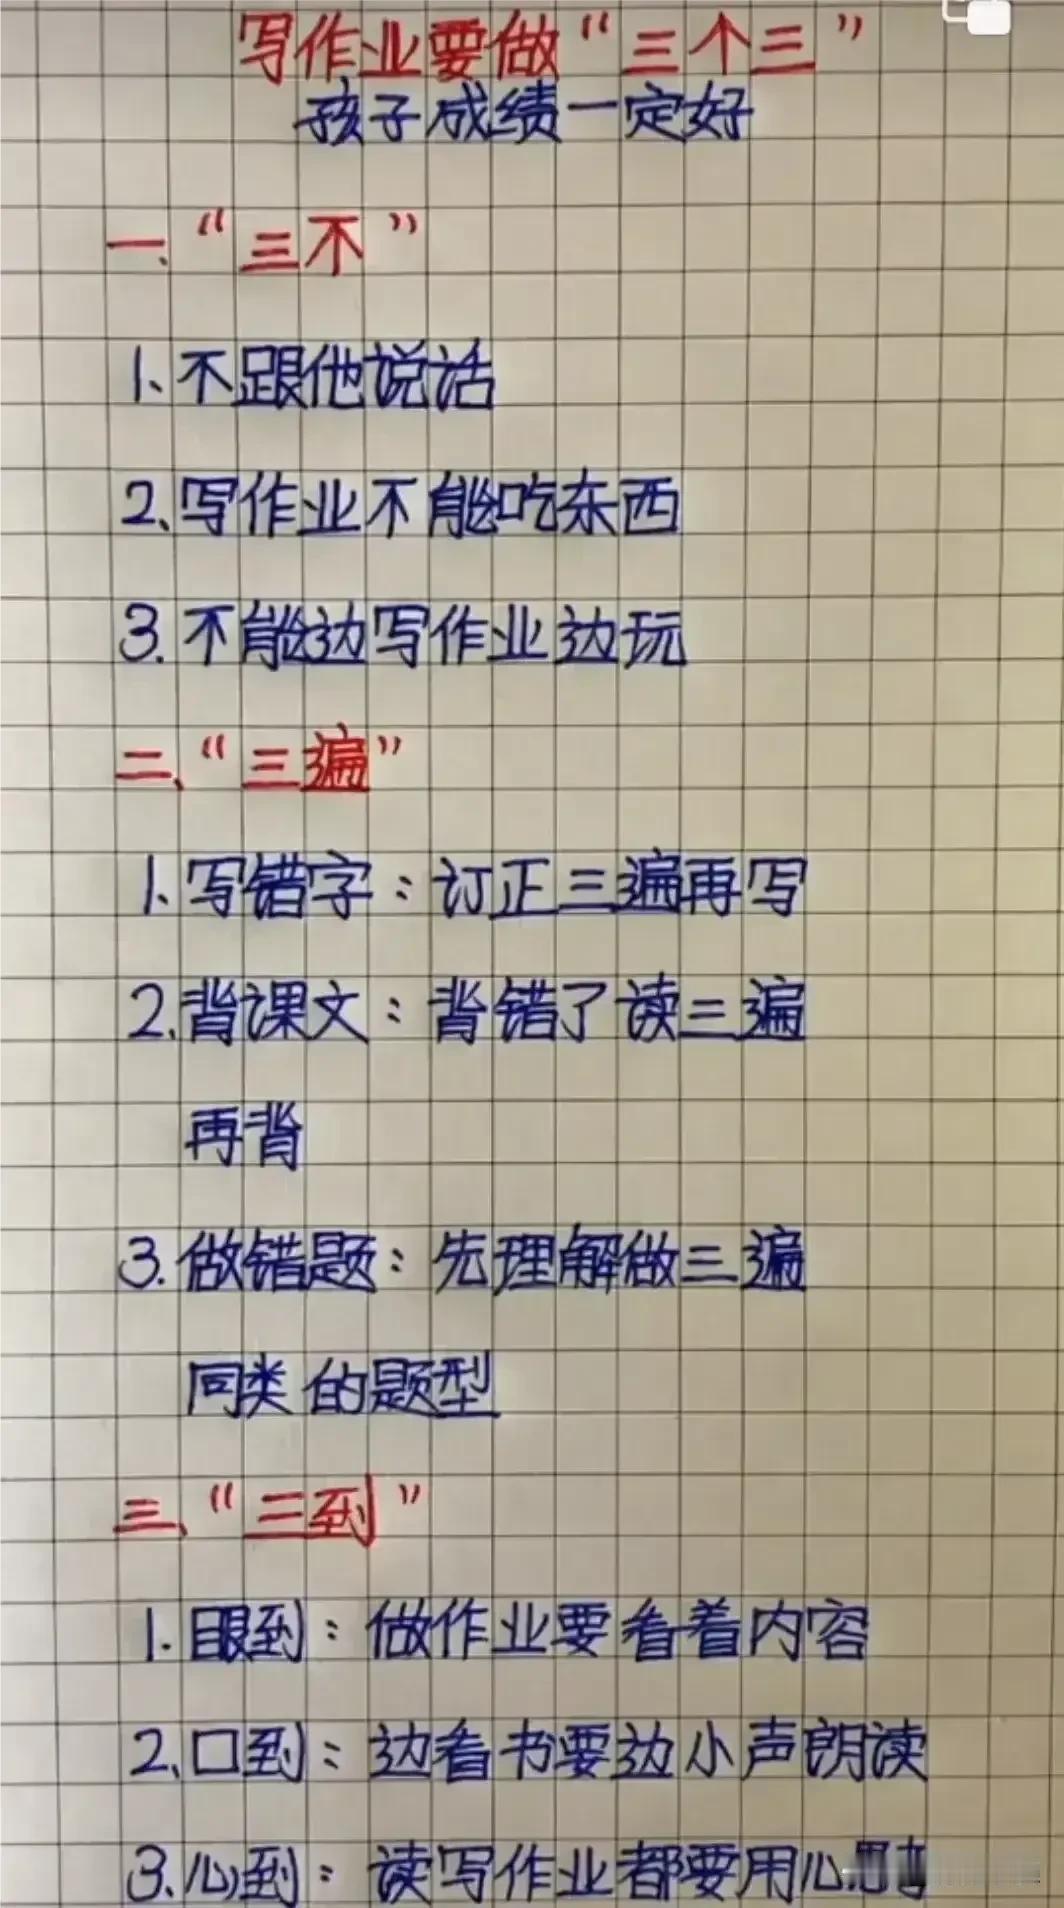 写作业要做“三个三”
孩子成绩一定好
一.“三不”
1、不跟他说话
2、写作业不能吃东西
3.不能边写作业边玩
二、“三遍”
1、写错字：订正三遍再写
2、背课文：背错了读三遍
再背
3.做错题：先理解做三遍
同类的题型
三、“三到”
1.眼到：做作业要看着内容
2、口到：边看书要边小声朗读
3.心到：读写作业都要用心思